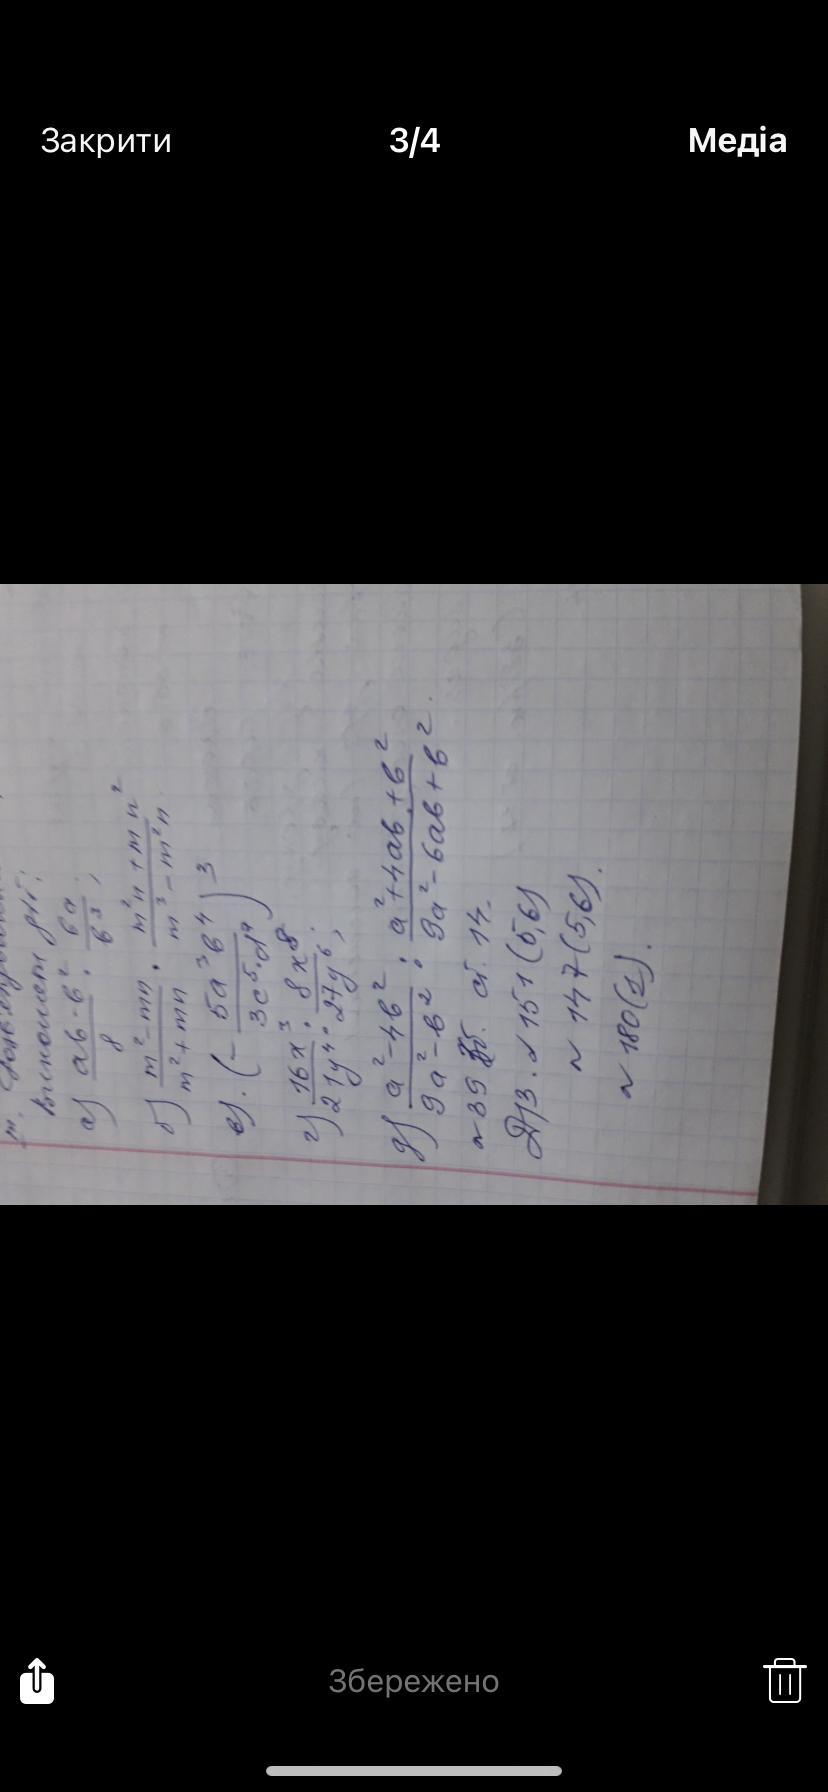 Закрити 3/4 Медіа
а) ab - b² / 8 : 6a / b³;
б) m² - mn / m² + mn · m²n + mn² / m³ - m²n
в). (- 5a³b⁴ / 3c⁵d⁴)³
г) 16x³ / 21y⁴ : 8x⁸ / 27y⁶;
д) a² - 4b² / 9a² - b² : a² + 4ab + b² / 9a² - 6ab + b².
№ 39 ст. 14.
Д/З. № 151 (5,6)
№ 147 (5,6).
№ 180 (1).
Збережено